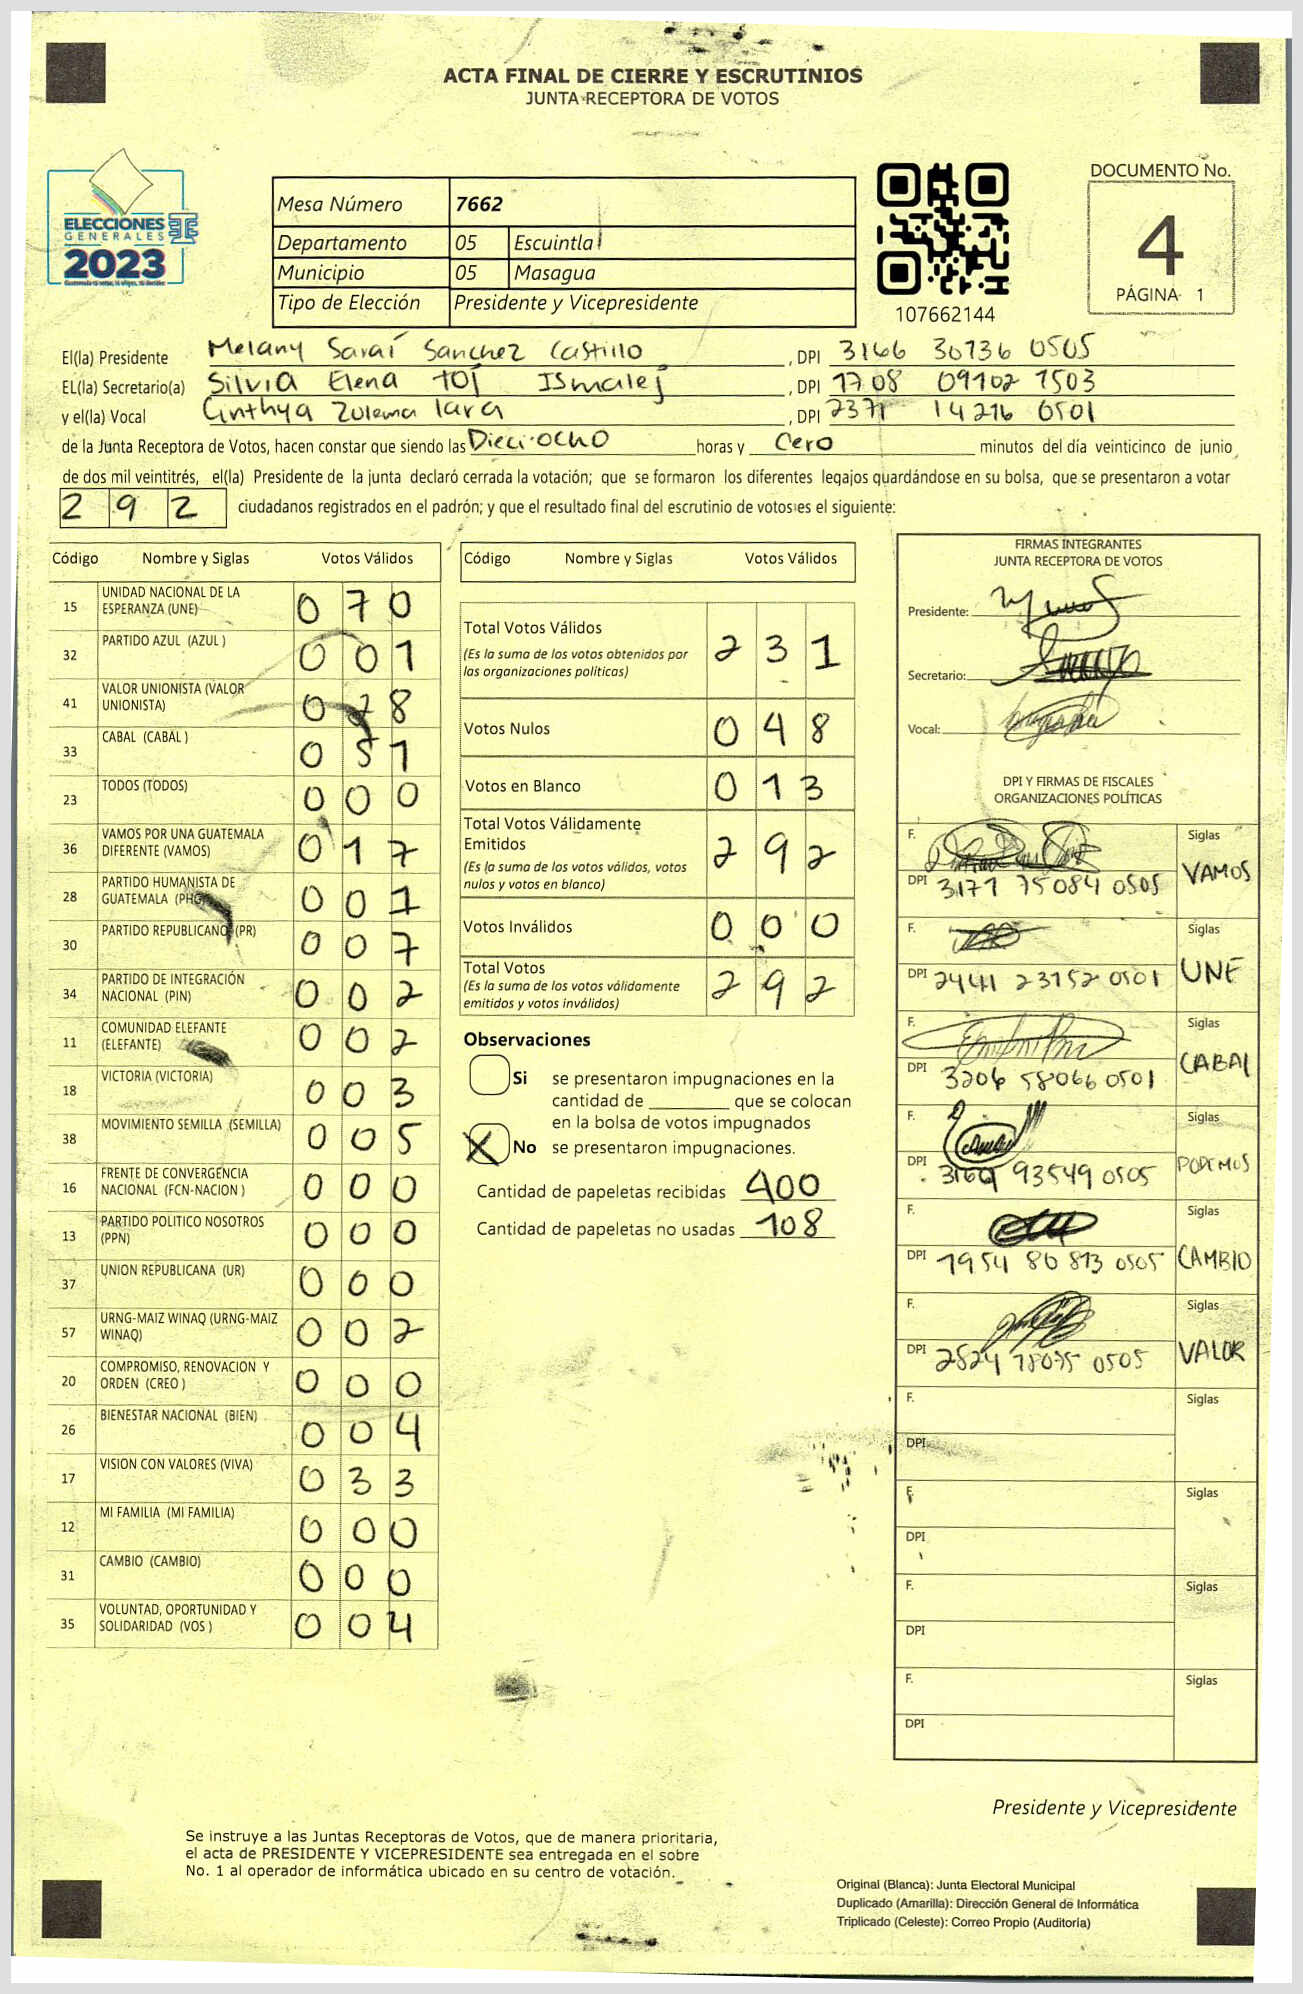 ACTA FINAL DE CIERRE Y ESCRUTINIOS
JUNTA RECEPTORA DE VOTOS
ELECCIONES
GENERALES
2023
Mesa Número 7662
Departamento 05 Escuintla
Municipio 05 Masagua
Tipo de Elección Presidente y Vicepresidente
107662144
DOCUMENTO No.
4
PÁGINA 1
El(la) Presidente Melany Saraí Sanchez Castillo, DPI 3166 30736 0505
EL(la) Secretario(a) Silvia Elena Toj Ismalej, DPI 1708 09102 1503
y el(la) Vocal Cinthya Zulema Iara, DPI 2371 14216 0501
de la Junta Receptora de Votos, hacen constar que siendo las Dieciocho horas y Cero minutos del día veinticinco de junio
de dos mil veintitrés, el(la) Presidente de la junta declaró cerrada la votación; que se formaron los diferentes legajos guardándose en su bolsa, que se presentaron a votar
292 ciudadanos registrados en el padrón; y que el resultado final del escrutinio de votos es el siguiente:
Código Nombre y Siglas Votos Válidos
15 UNIDAD NACIONAL DE LA ESPERANZA (UNE) 070
32 PARTIDO AZUL (AZUL ) 001
41 VALOR UNIONISTA (VALOR UNIONISTA) 028
33 CABAL (CABAL ) 051
23 TODOS (TODOS) 000
36 VAMOS POR UNA GUATEMALA DIFERENTE (VAMOS) 017
28 PARTIDO HUMANISTA DE GUATEMALA (PHG) 001
30 PARTIDO REPUBLICANO (PR) 007
34 PARTIDO DE INTEGRACIÓN NACIONAL (PIN) 002
11 COMUNIDAD ELEFANTE (ELEFANTE) 002
18 VICTORIA (VICTORIA) 003
38 MOVIMIENTO SEMILLA (SEMILLA) 005
16 FRENTE DE CONVERGENCIA NACIONAL (FCN-NACION ) 000
13 PARTIDO POLITICO NOSOTROS (PPN) 000
37 UNION REPUBLICANA (UR) 000
57 URNG-MAIZ WINAQ (URNG-MAIZ WINAQ) 002
20 COMPROMISO, RENOVACION Y ORDEN (CREO ) 000
26 BIENESTAR NACIONAL (BIEN) 004
17 VISION CON VALORES (VIVA) 033
12 MI FAMILIA (MI FAMILIA) 000
31 CAMBIO (CAMBIO) 000
35 VOLUNTAD, OPORTUNIDAD Y SOLIDARIDAD (VOS ) 004
Código Nombre y Siglas Votos Válidos
Total Votos Válidos 231
(Es la suma de los votos obtenidos por
las organizaciones políticas)
Votos Nulos 048
Votos en Blanco 013
Total Votos Válidamente
Emitidos 292
(Es la suma de los votos válidos, votos
nulos y votos en blanco)
Votos Inválidos 000
Total Votos 292
(Es la suma de los votos válidamente
emitidos y votos inválidos)
Observaciones
Si se presentaron impugnaciones en la
cantidad de ________ que se colocan
en la bolsa de votos impugnados
X No se presentaron impugnaciones.
Cantidad de papeletas recibidas 400
Cantidad de papeletas no usadas 108
FIRMAS INTEGRANTES
JUNTA RECEPTORA DE VOTOS
Presidente:
Secretario:
Vocal:
DPI Y FIRMAS DE FISCALES
ORGANIZACIONES POLÍTICAS
F. Siglas
DPI 3177 75084 0505 VAMOS
F. Siglas
DPI 2441 23152 0501 UNE
F. Siglas
DPI 3206 58066 0501 CABAL
F. Siglas
DPI 3169 93549 0505 PODEMOS
F. Siglas
DPI 1954 80 873 0505 CAMBIO
F. Siglas
DPI 2524 78075 0505 VALOR
F. Siglas
DPI
F. Siglas
DPI
F. Siglas
DPI
F. Siglas
DPI
Presidente y Vicepresidente
Se instruye a las Juntas Receptoras de Votos, que de manera prioritaria,
el acta de PRESIDENTE Y VICEPRESIDENTE sea entregada en el sobre
No. 1 al operador de informática ubicado en su centro de votación.
Original (Blanca): Junta Electoral Municipal
Duplicado (Amarilla): Dirección General de Informática
Triplicado (Celeste): Correo Propio (Auditoría)